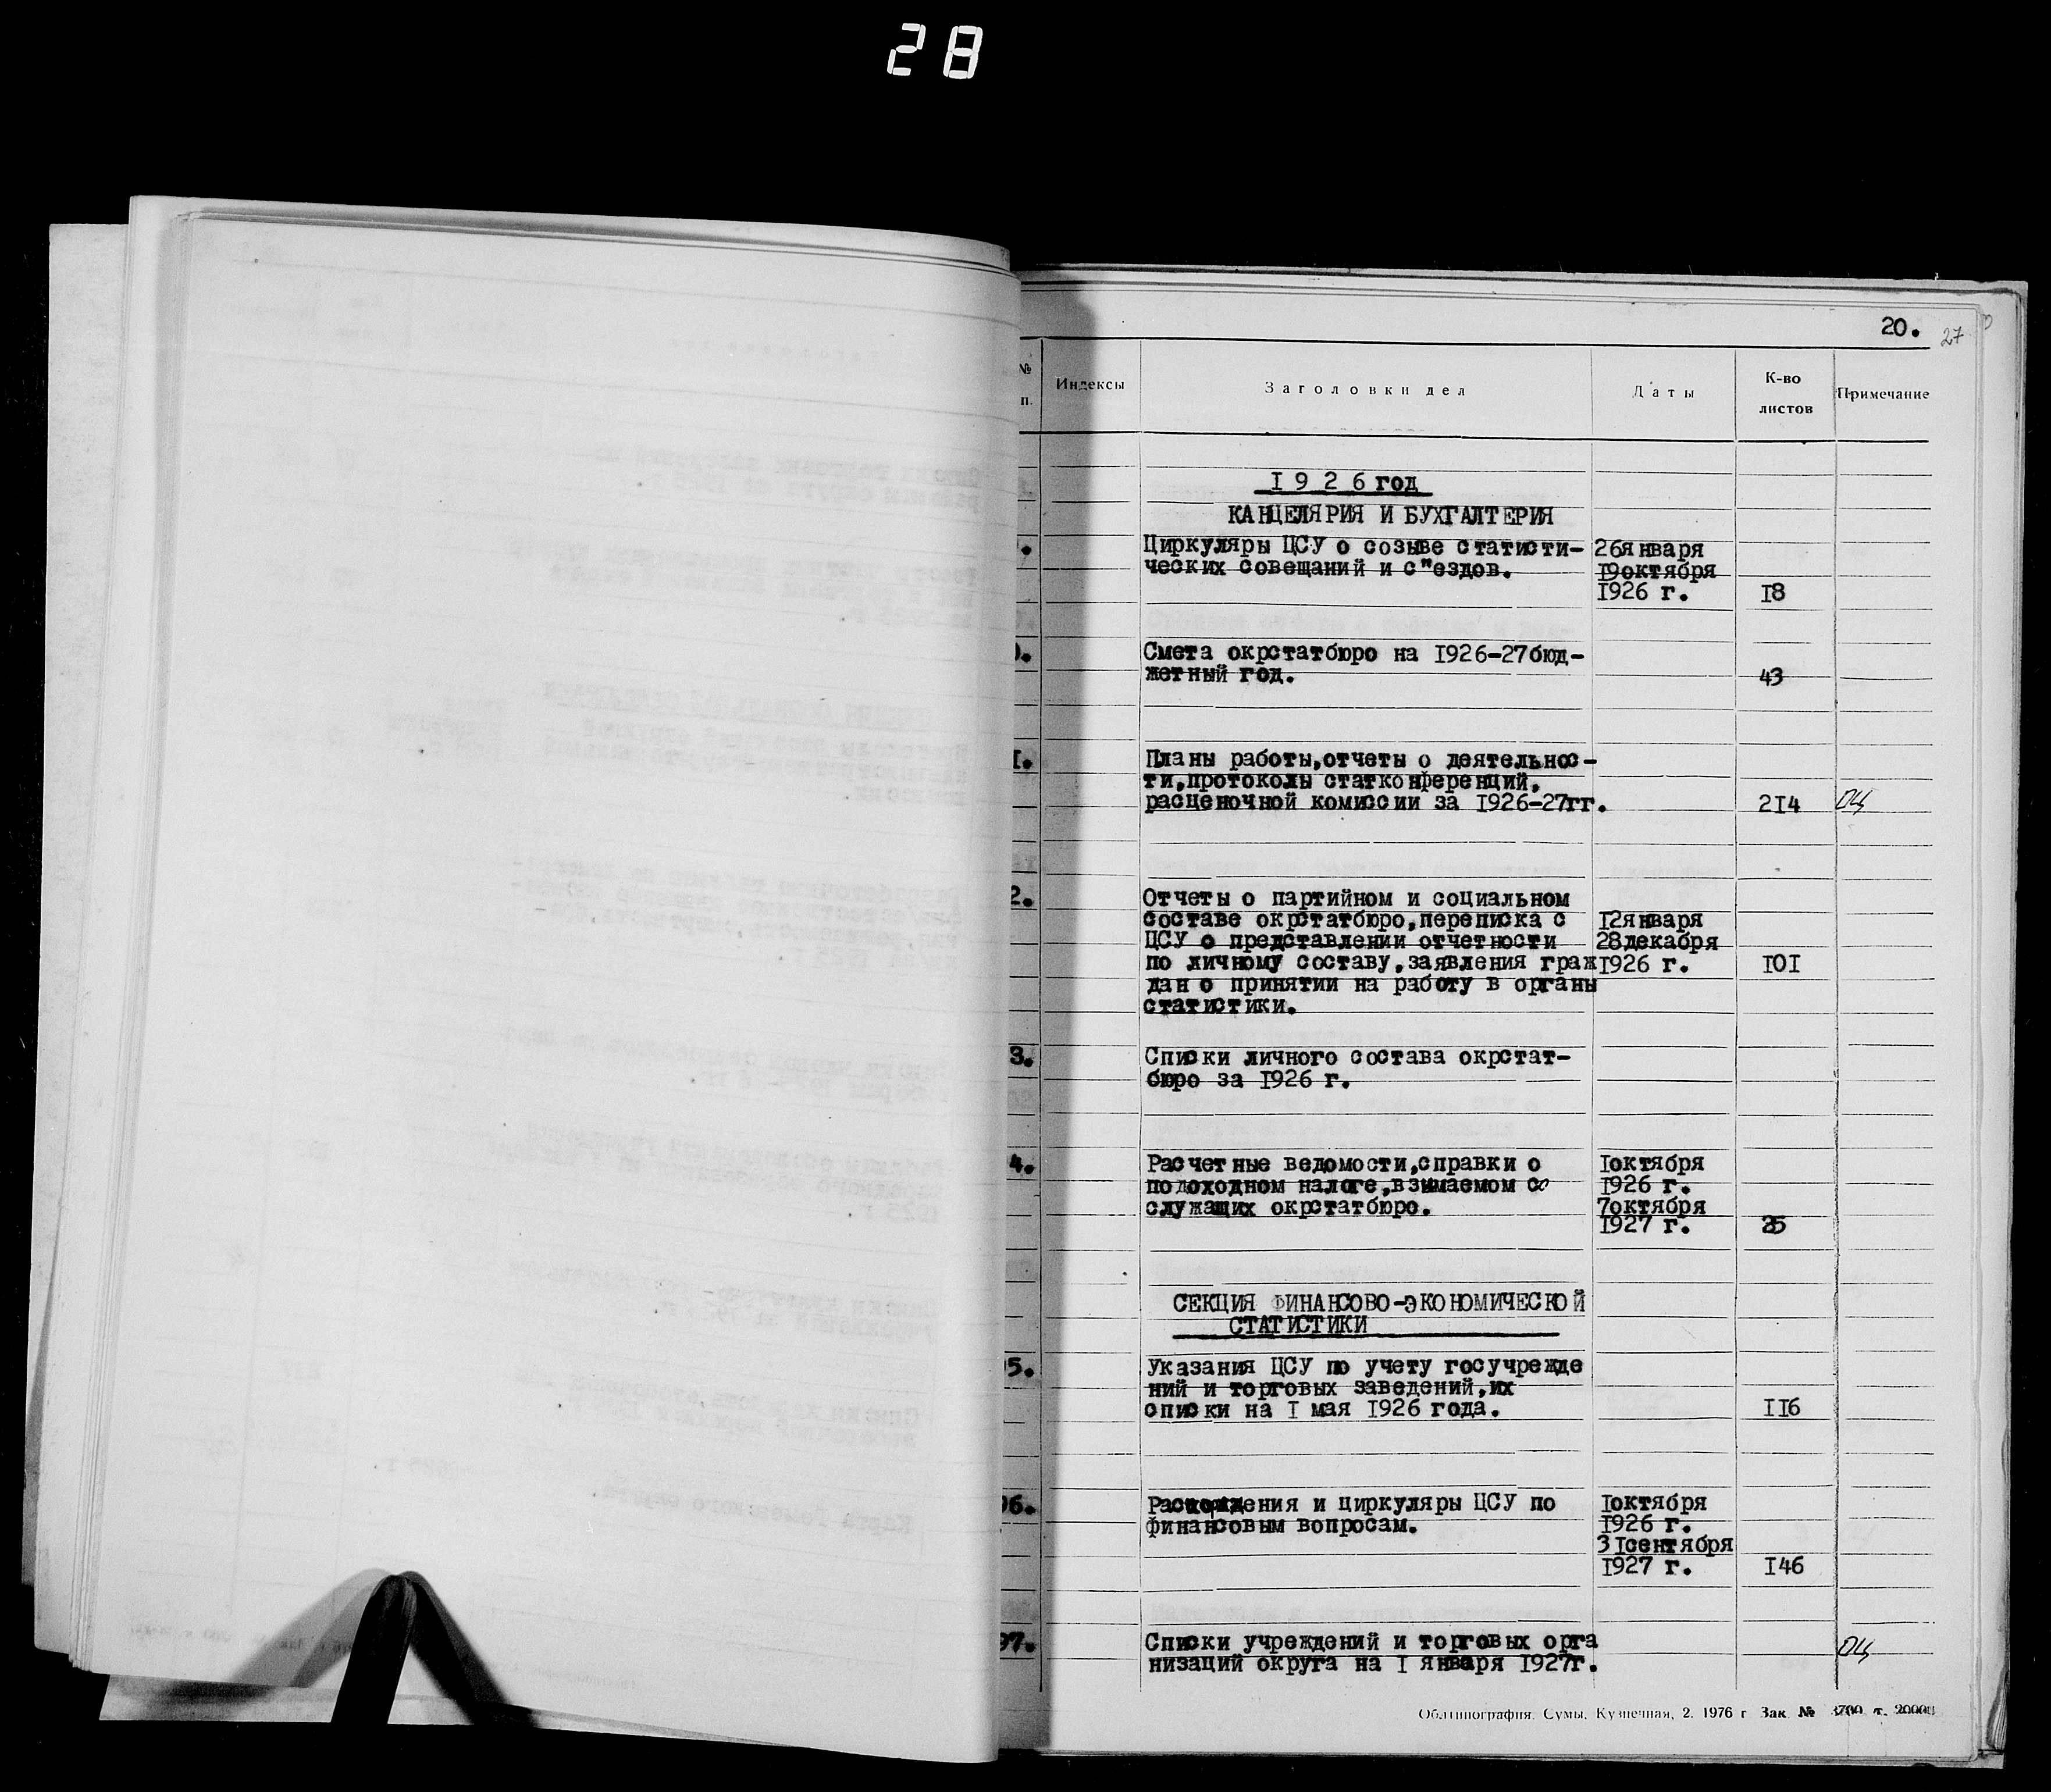 28
20. 27
№ п. Индексы Заголовки дел Даты К-во листов Примечание
1926 год
КАНЦЕЛЯРИЯ И БУХГАЛТЕРИЯ
Циркуляры ЦСУ о созыве статисти- 26января
ческих совещаний и с"ездов. 19октября
1926 г. 18
Смета окрстатбюро на 1926-27бюд-
жетный год. 43
1. Планы работы,отчеты о деятельнос-
ти,протоколы статконференций,
расценочной комиссии за 1926-27гг. 214 ОЦ
2. Отчеты о партийном и социальном
составе окрстатбюро,переписка с 12января
ЦСУ о представлении отчетности 28декабря
по личному составу,заявления граж 1926 г. 101
дан о принятии на работу в органы
статистики.
3. Списки личного состава окрстат-
бюро за 1926 г.
4. Расчетные ведомости,справки о 1октября
подоходном налоге,взимаемом со 1926 г.
служащих окрстатбюро. 7октября
1927 г. 25
СЕКЦИЯ ФИНАНСОВО-ЭКОНОМИЧЕСКОЙ
СТАТИСТИКИ
5. Указания ЦСУ по учету госучрежде
ний и торговых заведений,их
списки на 1 мая 1926 года. 116
96. Распоряждения и циркуляры ЦСУ по 1октября
финансовым вопросам. 1926 г.
31сентября
1927 г. 146
97. Списки учреждений и торговых орга ОЦ
низаций округа на 1 января 1927г.
Облтипография, Сумы, Кузнечная, 2. 1976 г Зак. № 3700 т.